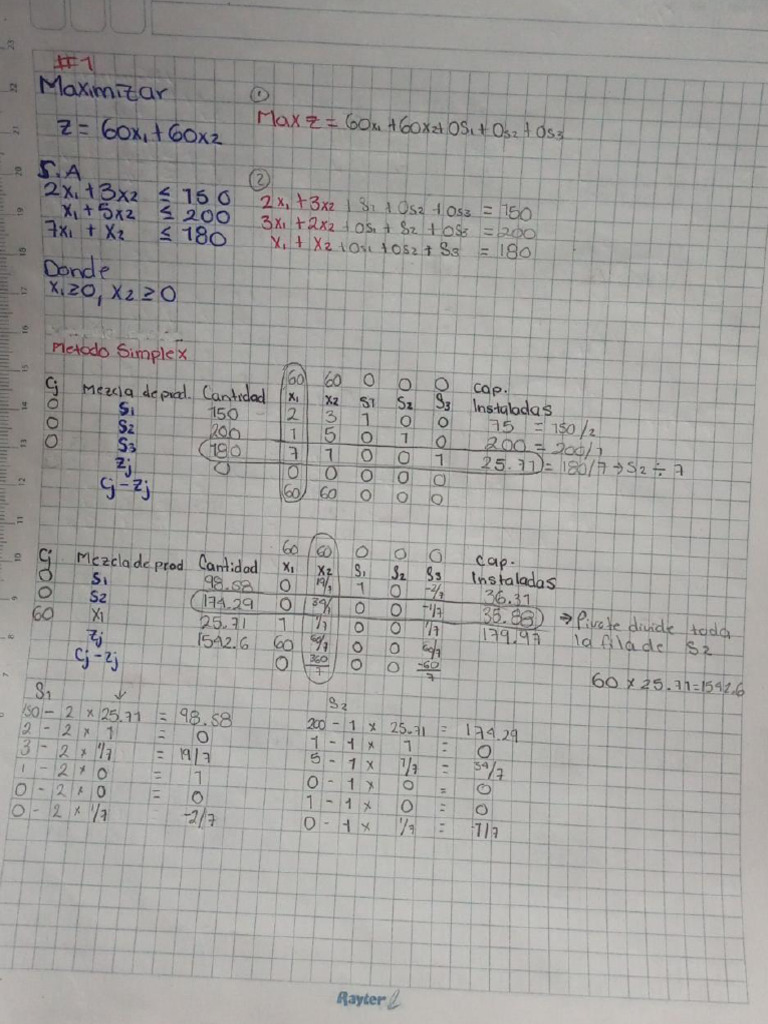 #1
Maximizar
z = 60x₁ + 60x2
S.A
2x₁ + 3x2 ≤ 150
x₁ + 5x2 ≤ 200
7x₁ + x2 ≤ 180
Donde
x₁≥0, x2≥0
①
Max z = 60x₁ + 60x2 + 0s₁ + 0s2 + 0s3
②
2x₁ + 3x2 + s₁ + 0s2 + 0s3 = 150
3x₁ + 2x2 + 0s₁ + s2 + 0s3 = 200
x₁ + x2 + 0s₁ + 0s2 + s3 = 180
Metodo Simplex
60 60 0 0 0 cap.
Cj Mezcla de prod. Cantidad x₁ x2 s1 s2 s3 Instaladas
0 s₁ 150 2 3 1 0 0 75 = 150/2
0 s2 200 1 5 0 1 0 200 = 200/1
0 s3 180 7 1 0 0 1 25.71 = 180/7 → s2 ÷ 7
zj 0 0 0 0 0 0
Cj - zj 60 60 0 0 0
60 60 0 0 0 cap.
Cj Mezcla de prod Cantidad x₁ x2 s₁ s2 s3 Instaladas
0 s₁ 98.58 0 19/7 1 0 -2/7 36.31
0 s2 174.29 0 34/7 0 0 -1/7 35.88 ⇒ Pivote divide toda
60 x₁ 25.71 1 1/7 0 0 1/7 179.97 la fila de s2
zj 1542.6 60 60/7 0 0 60/7
Cj - zj 0 360/7 0 0 -60/7
60 x 25.71 = 1542.6
s₁ ↓
150 - 2 x 25.71 = 98.58
2 - 2 x 1 = 0
3 - 2 x 1/7 = 19/7
1 - 2 x 0 = 1
0 - 2 x 0 = 0
0 - 2 x 1/7 -2/7
s2
200 - 1 x 25.71 = 174.29
1 - 1 x 1 = 0
5 - 1 x 1/7 = 34/7
0 - 1 x 0 = 0
1 - 1 x 0 = 0
0 - 1 x 1/7 = -1/7
Rayter